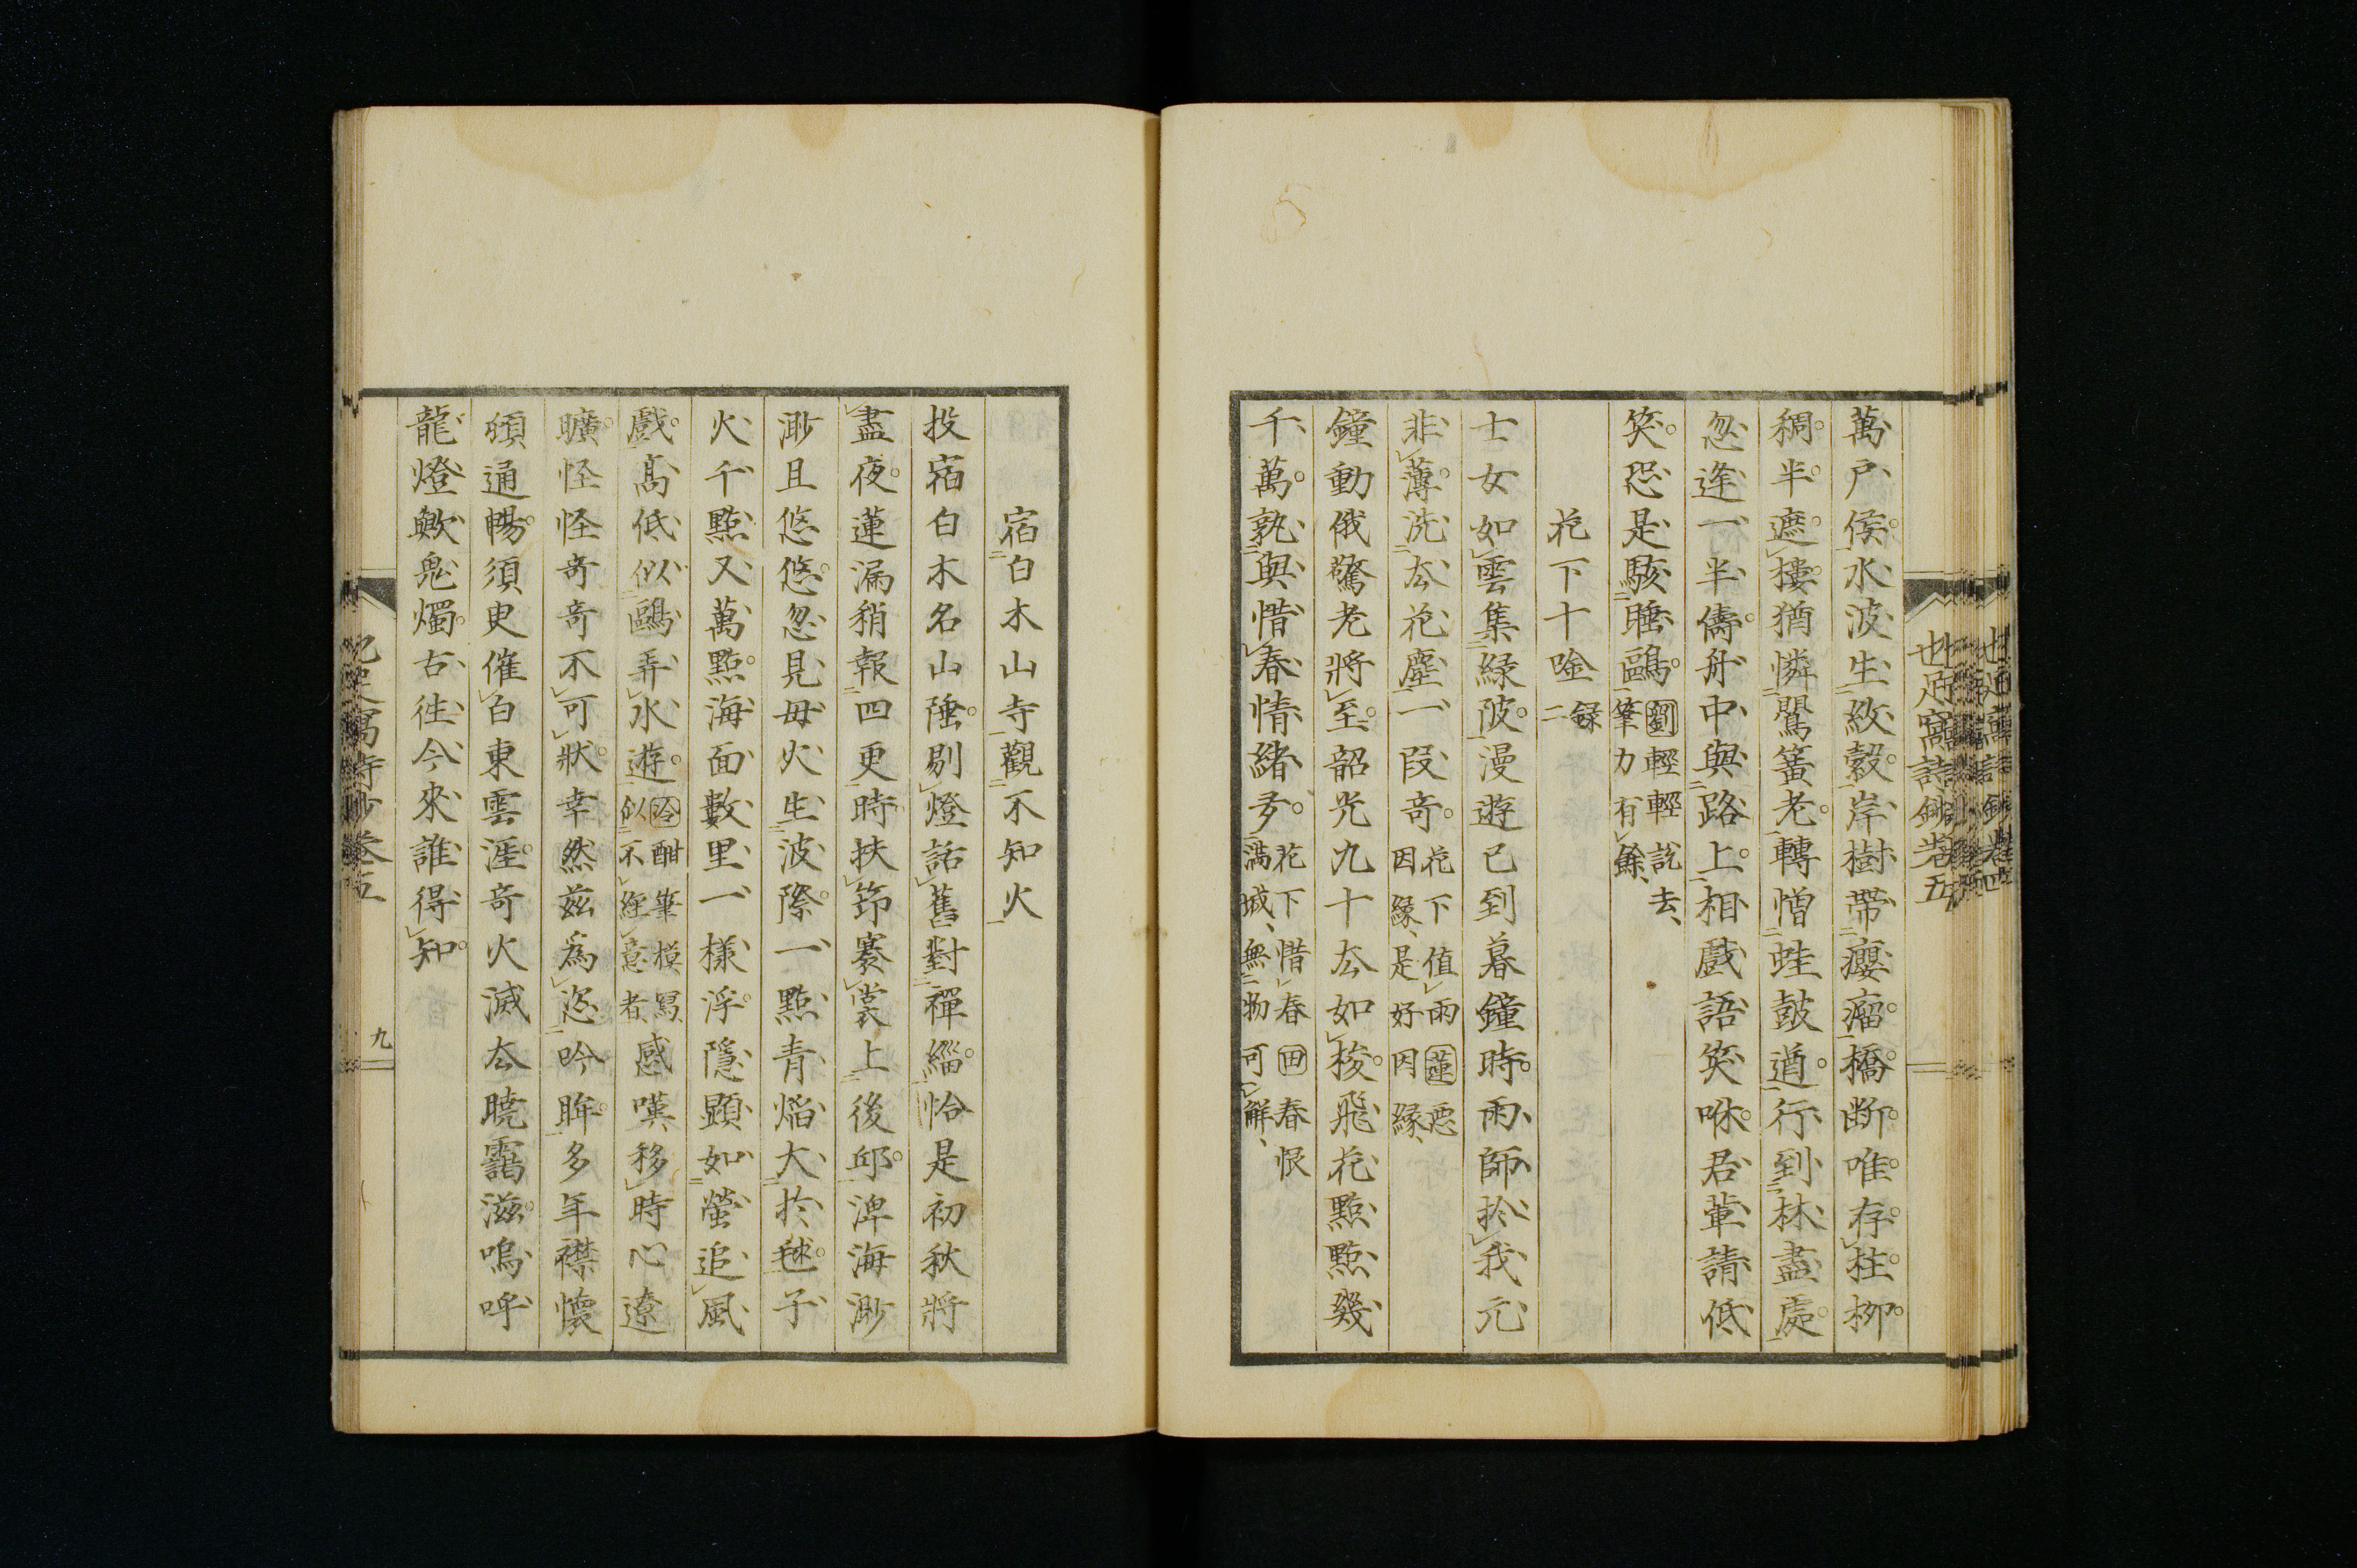 萬戶侯水波生紋縠岸樹帶癭瘤橋斷唯存柱柳
稠半遮樓猶憐鶯簧老轉憎蛙鼓遒行到林盡處
忽逢一半儔舟中與路上相戲語笑咻君輩請低
笑恐是駭睡鷗
劉輕輕說去
筆力有餘
花下十唫
錄
二
士女如雲集綠陂漫遊已到暮鐘時雨師於我元
非薄洗厺花塵一段奇
花下值雨蓮惡
因緣是好因緣
鐘動俄驚老將至韶光九十厺如梭飛花點點幾
千萬孰與惜春情緒多
花下惜春田春恨
滿城無物可解
也足窩詩鈔卷五
宿白木山寺觀不知火
投宿白木名山陲剔燈話舊對禪緇恰是初秋將
盡夜蓮漏稍報四更時扶筇褰裳上後邱渒海渺
渺且悠悠忽見毋火生波際一點青焰大於毬子
火千點又萬點海面數里一樣浮隱顯如螢追風
戲高低似鷗弄水遊
冷酣筆模寫
似不經意者
感嘆移時心遼
曠怪怪奇奇不可狀幸然茲爲恣吟眸多年襟懷
頓通暢須臾催白東雲涯奇火滅厺曉靄滋嗚呼
龍燈歟鬼燭古往今來誰得知
九